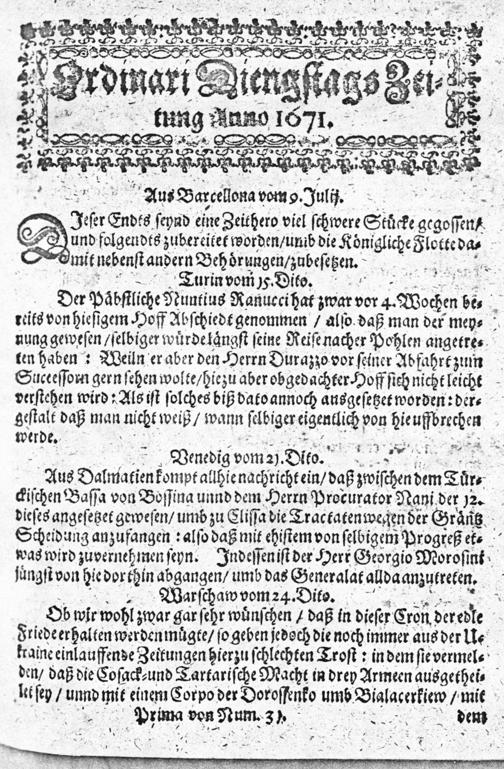 Ordinari Diengstags Zei-
tung Anno 1671.
Aus Barcellona vom 9. Julij.
DJeser Endts seynd eine Zeithero viel schwere Stücke gegossen/
und folgendts zubereitet worden/umb die Königliche Flotte da-
mit nebenst andern Behörungen/zubesetzen.
Turin vom 15. Dito.
Der Päbstliche Nuntius Ranucci hat zwar vor 4. Wochen be-
reits von hiesigem Hoff Abschiedt genommen / also daß man der mey-
nung gewesen/selbiger würde längst seine Reise nacher Pohlen angetre-
ten haben : Weiln er aber den Herrn Durazzo vor seiner Abfahrt zum
Successorn gern sehen wolte/hiezu aber obgedachter Hoff sich nicht leicht
verstehen wird : Als ist solches biß dato annoch ausgesetzet worden : der-
gestalt daß man nicht weiß / wann selbiger eigentlich von hie uffbrechen
werde.
Venedig vom 21. Dito.
Aus Dalmatien kompt allhie nachricht ein/ daß zwischen dem Tür-
ckischen Bassa von Bossina unnd dem Herrn Procurator Nani der 12.
dieses angesetzet gewesen/ umb zu Clissa die Tractaten wegen der Gräntz
Scheidung anzufangen : also daß mit ehistem von selbigem Progreß et-
was wird zuvernehmen seyn. Indessen ist der Herr Georgio Morosini
jüngst von hie dorthin abgangen/ umb das Generalat allda anzutreten.
Warschaw vom 24. Dito.
Ob wir wohl zwar gar sehr wünschen / daß in dieser Cron der edle
Friede erhalten werden mügte/ so geben jedoch die noch immer aus der U-
kraine einlauffende Zeitungen hierzu schlechten Trost : in dem sie vermel-
den/ daß die Cosack- und Tartarische Macht in drey Armeen ausgethei-
let sey / unnd mit einem Corpo der Dorossenko umb Bialacerkiew / mit
Prima von Num. 31. dem